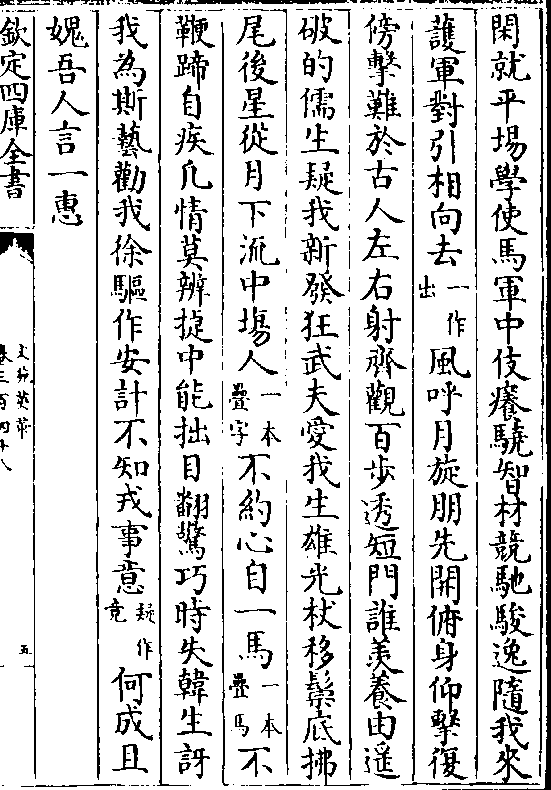 閑就平場學使馬軍中伎癢驍智材競馳駿逸隨我來
護軍對引相向去一作出風呼月旋朋先開俯身仰擊復
傍擊難於古人左右射齊觀百步透短門誰羡養由遥
破的儒生疑我新發狂武夫愛我生雄光杖移鬃底拂
尾後星從月下流中塲人一本疊字不約心自一馬一本疊馬不
鞭蹄自疾凡情莫辨捉中能拙目翻驚巧時失韓生訝
我為斯藝勸我徐驅作安計不知戎事意疑作竟何成且
媿吾人言一惠
欽定四庫全書
文苑英華
卷三百四十八
五